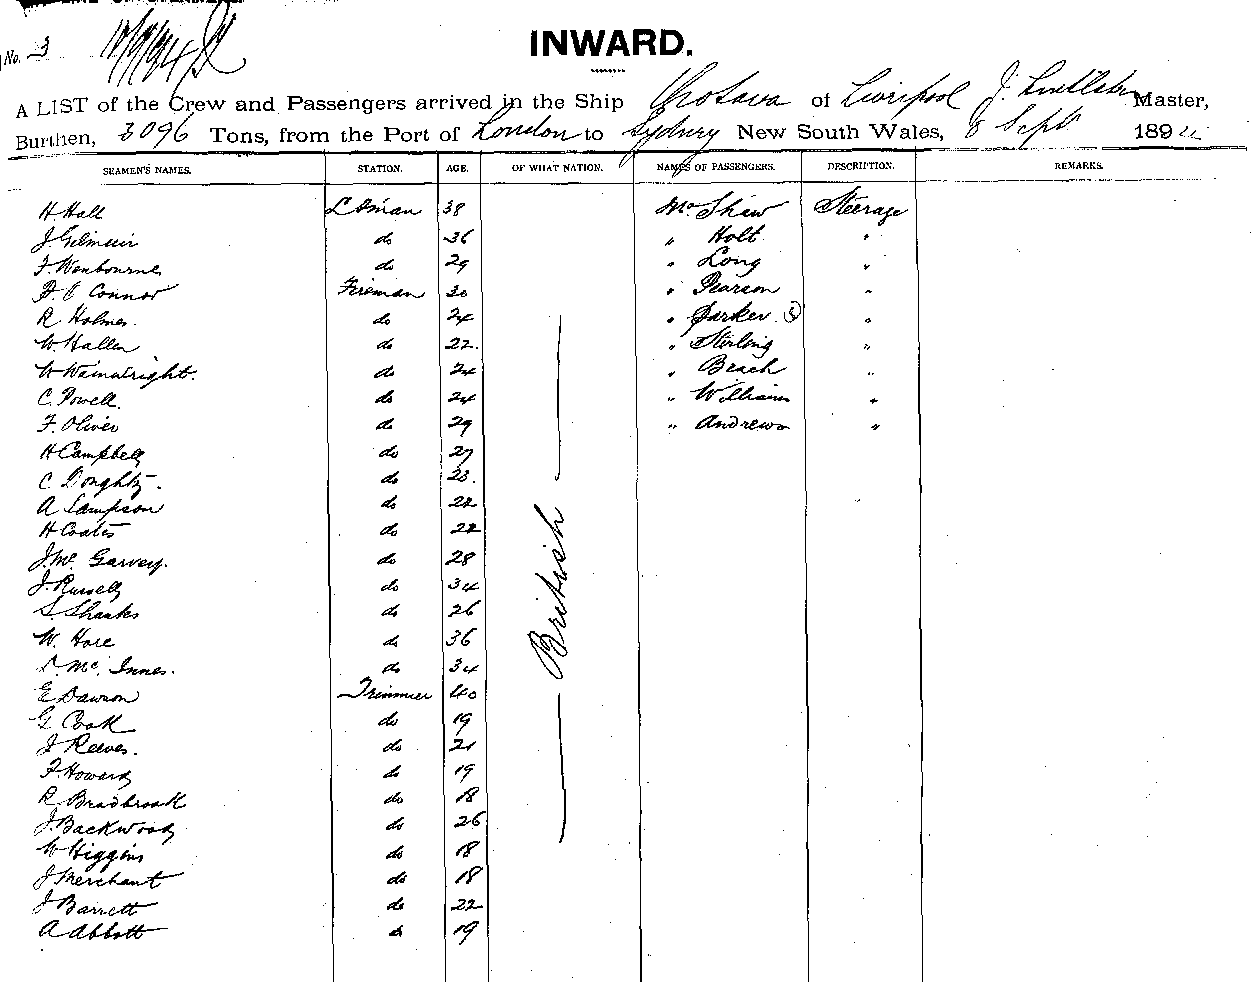 No. 3
INWARD.
A LIST of the Crew and Passengers arrived in the Ship Orotava of Liverpool J. Master,
Burthen, 3096 Tons, from the Port of London to Sydney New South Wales, 8 Sept 189
SEAMEN'S NAMES. STATION. AGE. OF WHAT NATION. NAMES OF PASSENGERS. DESCRIPTION. REMARKS.
H Hall 38 Mr Shaw Steerage
J Gilmuir do 36 " Holt "
F. Wenbourne do 29 " Long "
O Connor Fireman 30 " Pearson "
R Holmes do 24 " Parker "
W. Hallen do 22. " Sterling "
W Wainwright. do 24 " Beach "
C. Powell. do 24 " William "
F. Oliver do 29 " Andrews "
H Campbell do 27
C Doughty. do 23.
A Sampson do 22
H Coates do 22
J. Mc Garvey. do 28
J. Russell do 34
S. Shanks do 26
W. Hore do 36
Mc Innes. do 34
E Dawson Trimmer 40
G Cook do 19
J Reeves. do 21
F. Howard do 19
R Bradbrook do 18
J. Backwood do 26
W Higgins do 18
J Merchant do 18
J Barrett do 22
A Abbott do 19
British